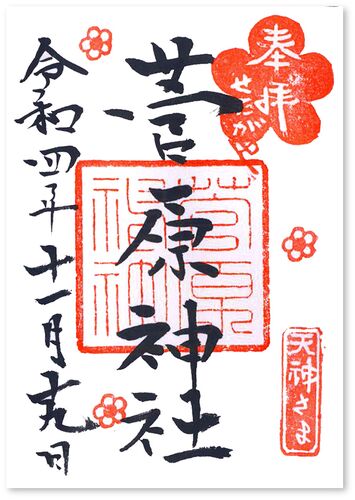 奉拝
せたがや
菅原神社
菅原
天神さま
令和四年十一月十九日